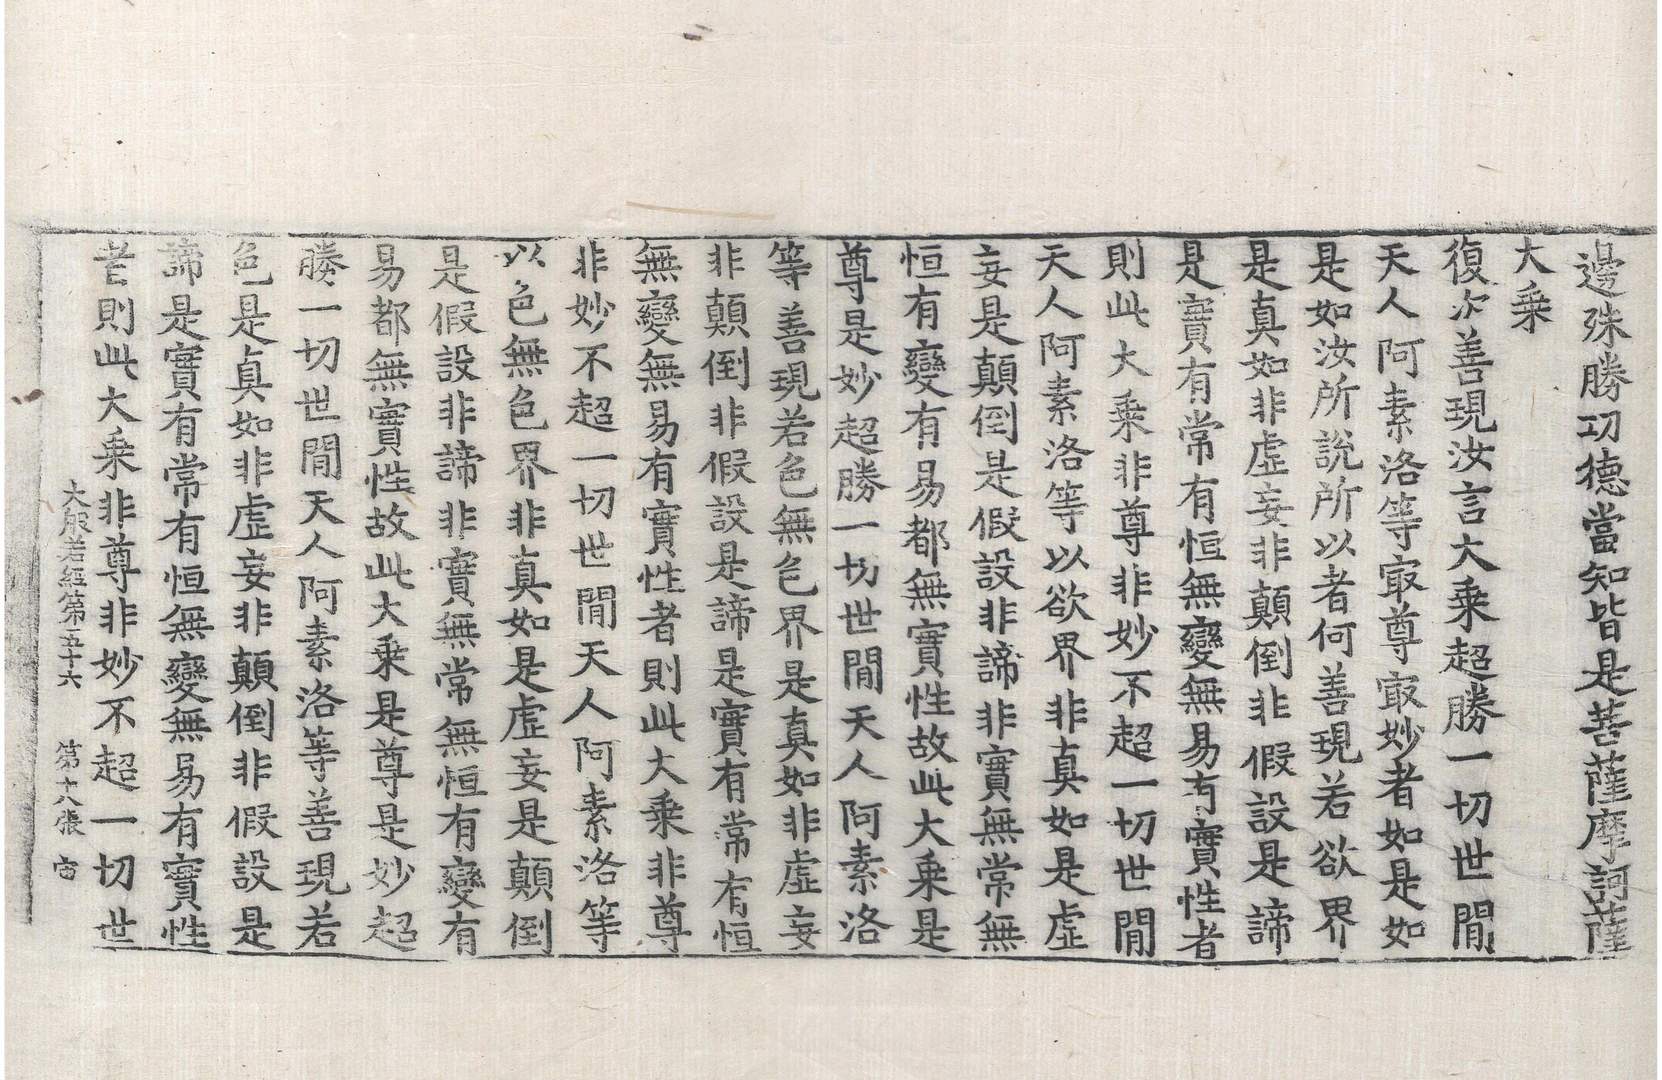 邊殊勝功德當知皆是菩薩摩訶薩
大乘
復次善現汝言大乘超勝一切世間
天人阿素洛等㝡尊㝡妙者如是如
是如汝所說所以者何善現若欲界
是真如非虛妄非顛倒非假設是諦
是實有常有恒無變無易有實性者
則此大乘非尊非妙不超一切世間
天人阿素洛等以欲界非真如是虛
妄是顛倒是假設非諦非實無常無
恒有變有易都無實性故此大乘是
尊是妙超勝一切世間天人阿素洛
等善現若色無色界是真如非虛妄
非顛倒非假設是諦是實有常有恒
無變無易有實性者則此大乘非尊
非妙不超一切世間天人阿素洛等
以色無色界非真如是虛妄是顛倒
是假設非諦非實無常無恒有變有
易都無實性故此大乘是尊是妙超
勝一切世間天人阿素洛等善現若
色是真如非虛妄非顛倒非假設是
諦是實有常有恒無變無易有實性
者則此大乘非尊非妙不超一切世
大般若經第五十六 第十八張